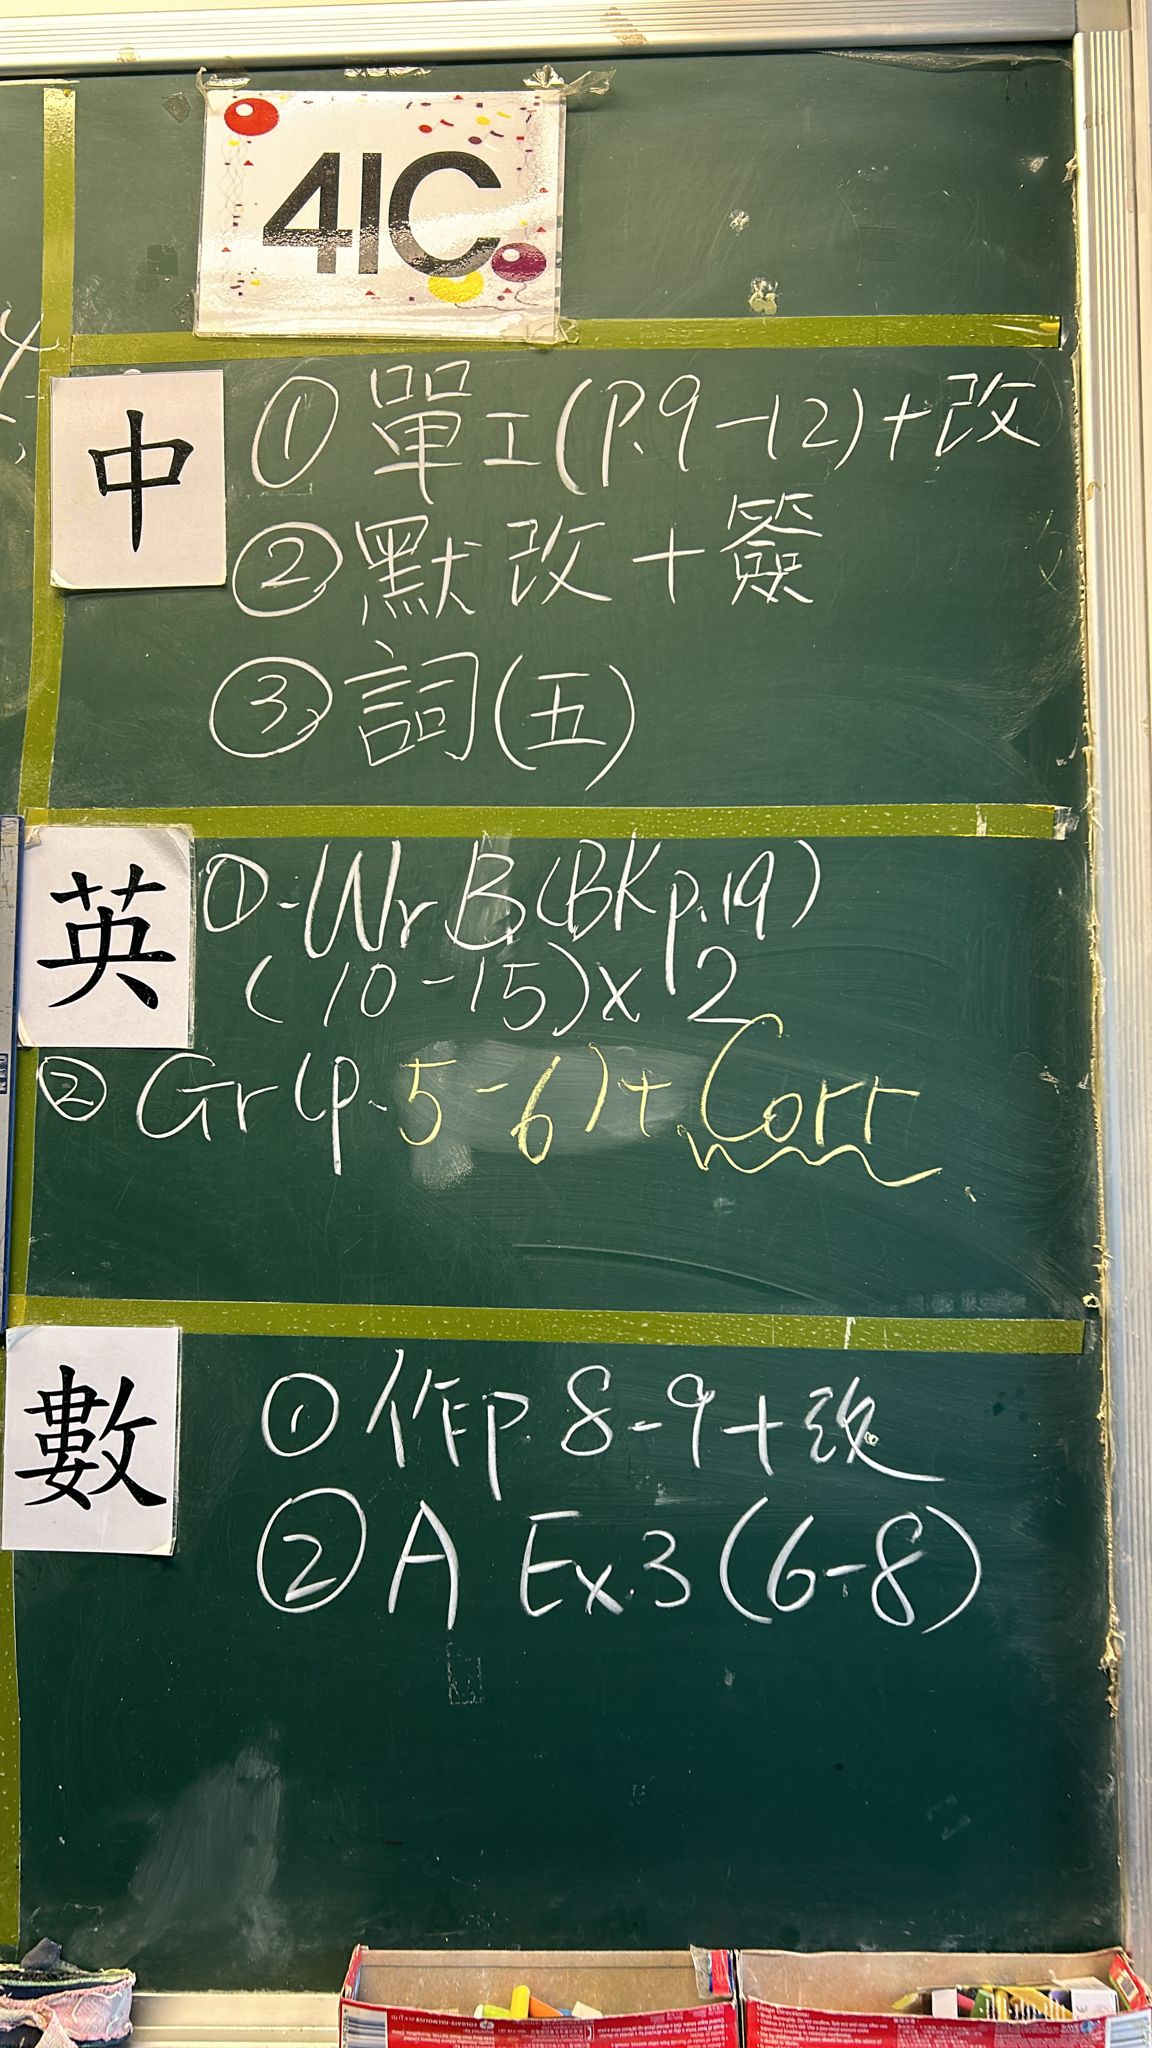 41C
中
① 單工(P.9-12)+改
② 默改+簽
③ 詞(五)
英
①.Wr.B(BK p.19)
(10-15)x 2
② Gr(p.5-6)+Corr
數
① 作P.8-9+改
② A Ex.3(6-8)